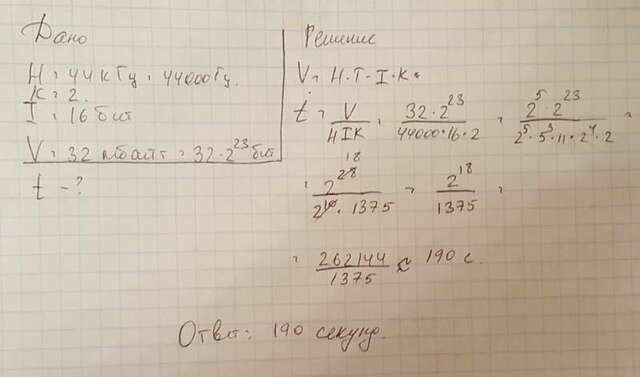 Дано
H = 44 кГц = 44000 Гц.
K = 2.
I = 16 бит
V = 32 мбайт = 32 · 2^23 бит
t - ?
Решение
V = H · T · I · K
t = V / HIK = 32 · 2^23 / 44000 · 16 · 2 = 2^5 · 2^23 / 2^5 · 5^3 · 11 · 2^4 · 2 =
= 2^28 18 / 2^10 · 1375 = 2^18 / 1375 =
= 262144 / 1375 ≈ 190 с.
Ответ: 190 секунд.